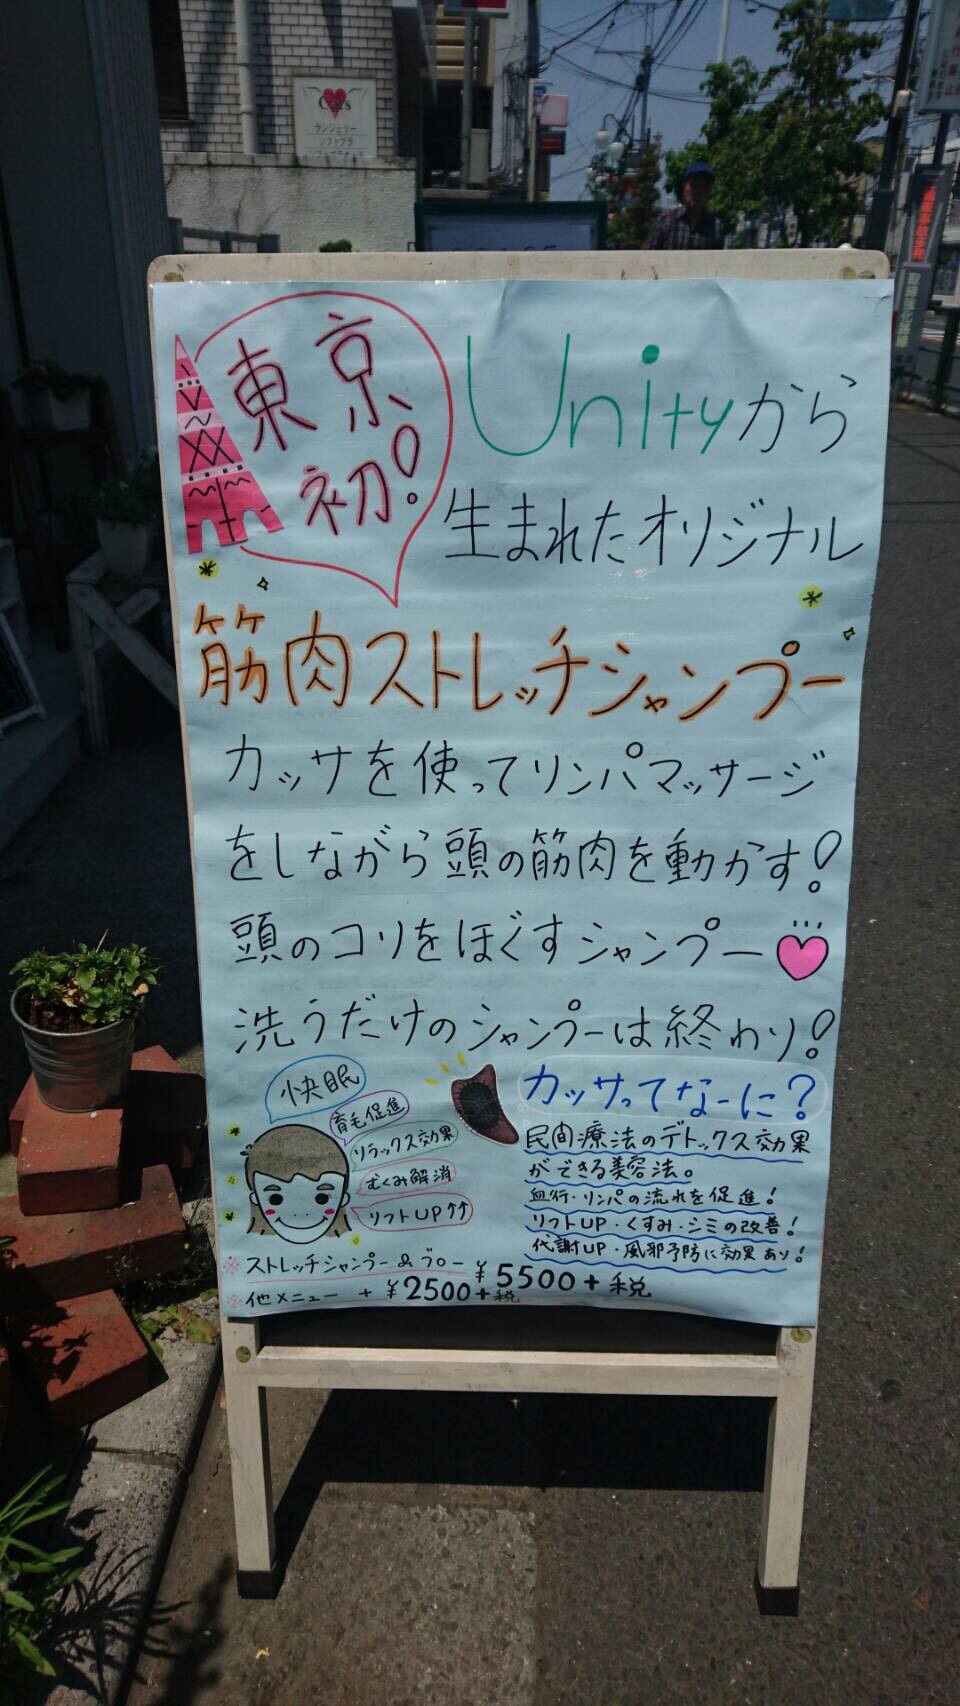 Cats
ランジェリー
ソフトブラ
東京
初!
Unityから
生まれたオリジナル
筋肉ストレッチシャンプー
カッサを使ってリンパマッサージ
をしながら頭の筋肉を動かす!
頭のコリをほぐすシャンプー
洗うだけのシャンプーは終わり!
快眠
育毛促進
リラックス効果
むくみ解消
リフトUP↑↑
カッサってなーに?
民間療法のデトックス効果
ができる美容法。
血行・リンパの流れを促進!
リフトUP・くすみ・シミの改善!
代謝UP・風邪予防に効果あり!
※ストレッチシャンプー&ブロー ¥5500+税
※他メニュー + ¥2500+税